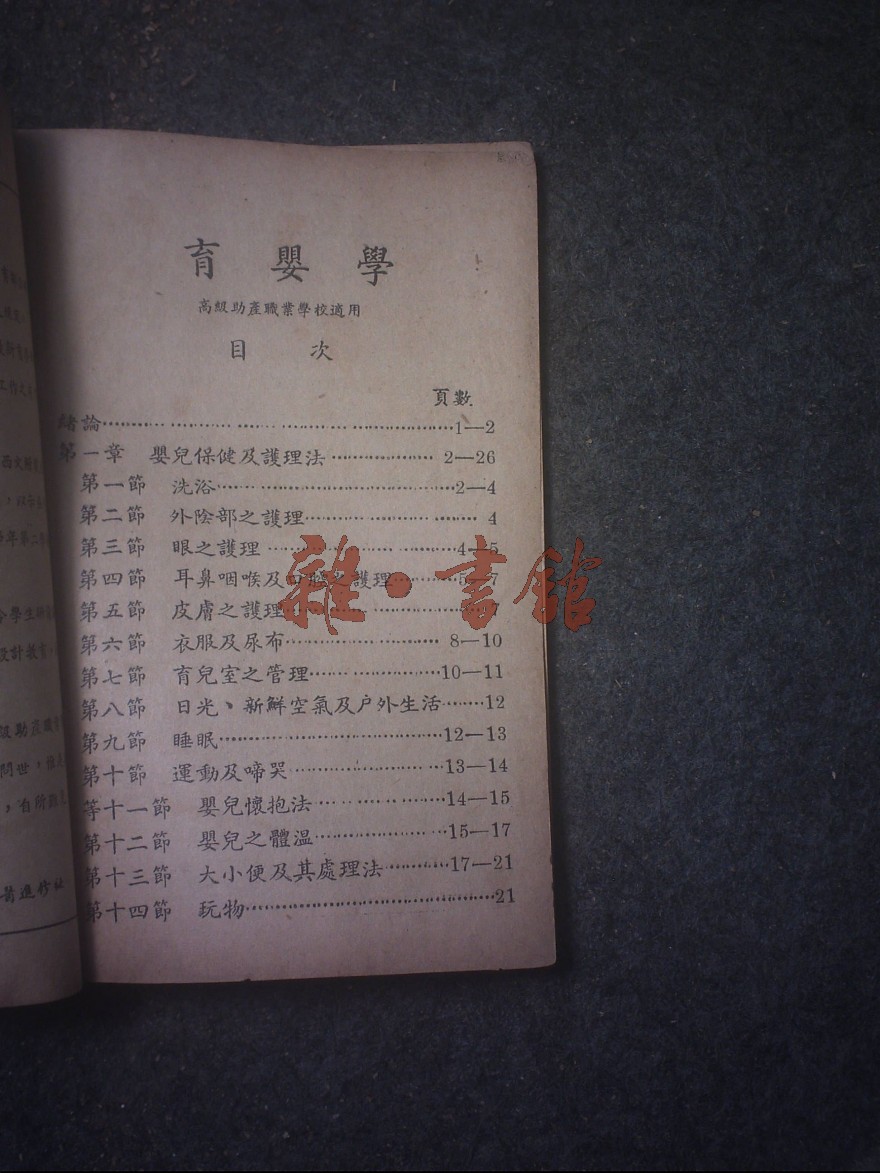 育嬰學
高級助產職業學校適用
目次
頁數
緒論……1—2
第一章 嬰兒保健及護理法……2—26
第一節 洗浴……2—4
第二節 外陰部之護理……4
第三節 眼之護理……4—5
第四節 耳鼻咽喉及口腔之護理……5—7
第五節 皮膚之護理……7
第六節 衣服及尿布……8—10
第七節 育兒室之管理……10—11
第八節 日光、新鮮空氣及戶外生活……12
第九節 睡眠……12—13
第十節 運動及啼哭……13—14
等十一節 嬰兒懷抱法……14—15
第十二節 嬰兒之體溫……15—17
第十三節 大小便及其處理法……17—21
第十四節 玩物……21
雜·書館